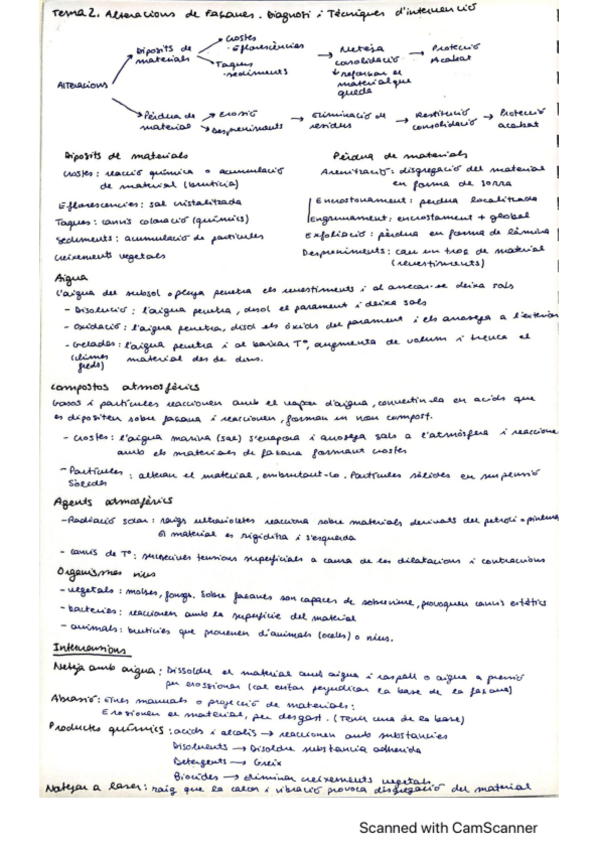 Tema 2. Alteracions de Façanes. Diagnosi i Tècniques d'intervenció
Alteracions
Diposits de materials
Crostes
· Eflorescències
Taques
· sediments
Neteja
consolidació
↓ reforçar el material que queda
Protecció
Acabat
Pèrdua de material
Erosió
Despreniments
Eliminació de residus
Restitució
consolidació
Protecció
acabat
Diposits de materials
Crostes: reacció química o acumulació
de material (brutícia)
Eflorescencies: sal cristalitzada
Taques: canvis coloració (químics)
Sediments: acumulació de partícules
Creixements vegetals
Pèrdua de materials
Arenització: disgregació del material
en forma de sorra
Encrostonament: pèrdua localitzada
Engrunament: encrostament + global
Exfoliació: pèrdua en forma de làmina
Despreniments: cau un troç de material
(revestiments)
Aigua
L'aigua del subsol o pluja penetra els revestiments i al assecar-se deixa sals
- Disolució: l'aigua penetra, disol el parament i deixa sals
- Oxidació: l'aigua penetra, disol els òxids del parament i els arrossega a l'exterior
- Gelades: l'aigua penetra i al baixar Tº, augmenta de volum i trenca el
(climes freds)
material des de dins.
Compostos atmosfèrics
Gasos i partícules reaccionen amb el vapor d'aigua, convertin-la en acids que
es dipositen sobre façana i reaccionen, forman un nou compost.
- Crostes: l'aigua marina (sal) s'evapora i arrosega sals a l'atmósfera i reaccione
amb els materials de façana formant crostes
- Partícules Sòlides: alteran el material, embrutant-lo. Partícules sòlides en suspensió
Agents atmosfèrics
- Radiació solar: raigs ultravioletes reacciona sobre materials derivats del petroli o pintures
El material es rigiditza i s'esquerda
- Canvis de Tº: successives tensions superficials a causa de les dilatacions i contraccions
Organismes vius
- vegetals: molses, fongs. Sobre façanes son capaces de sobreviure, provoquen canvis estètics
- bacteries: reaccionen amb la superficie del material
- animals: brutícies que provenen d'animals (ocells) o nius.
Intervencions
Neteja amb aigua: Dissoldre el material amb aigua i raspall o aigua a pressió
per erossionar (cal evitar perjudicar la base de la façana)
Abrasió: Eines manuals o projecció de materials:
Erosionen el material, per desgast. (Tenir cura de la base)
Productes químics: acids i alcalis → reaccionen amb substancies
Disolvents → Disoldre substancia adherida
Detergents → Greix
Biocides → eliminar creixements vegetals
Netejar a laser: raig que la calor i vibració provoca disgregació del material
Scanned with CamScanner